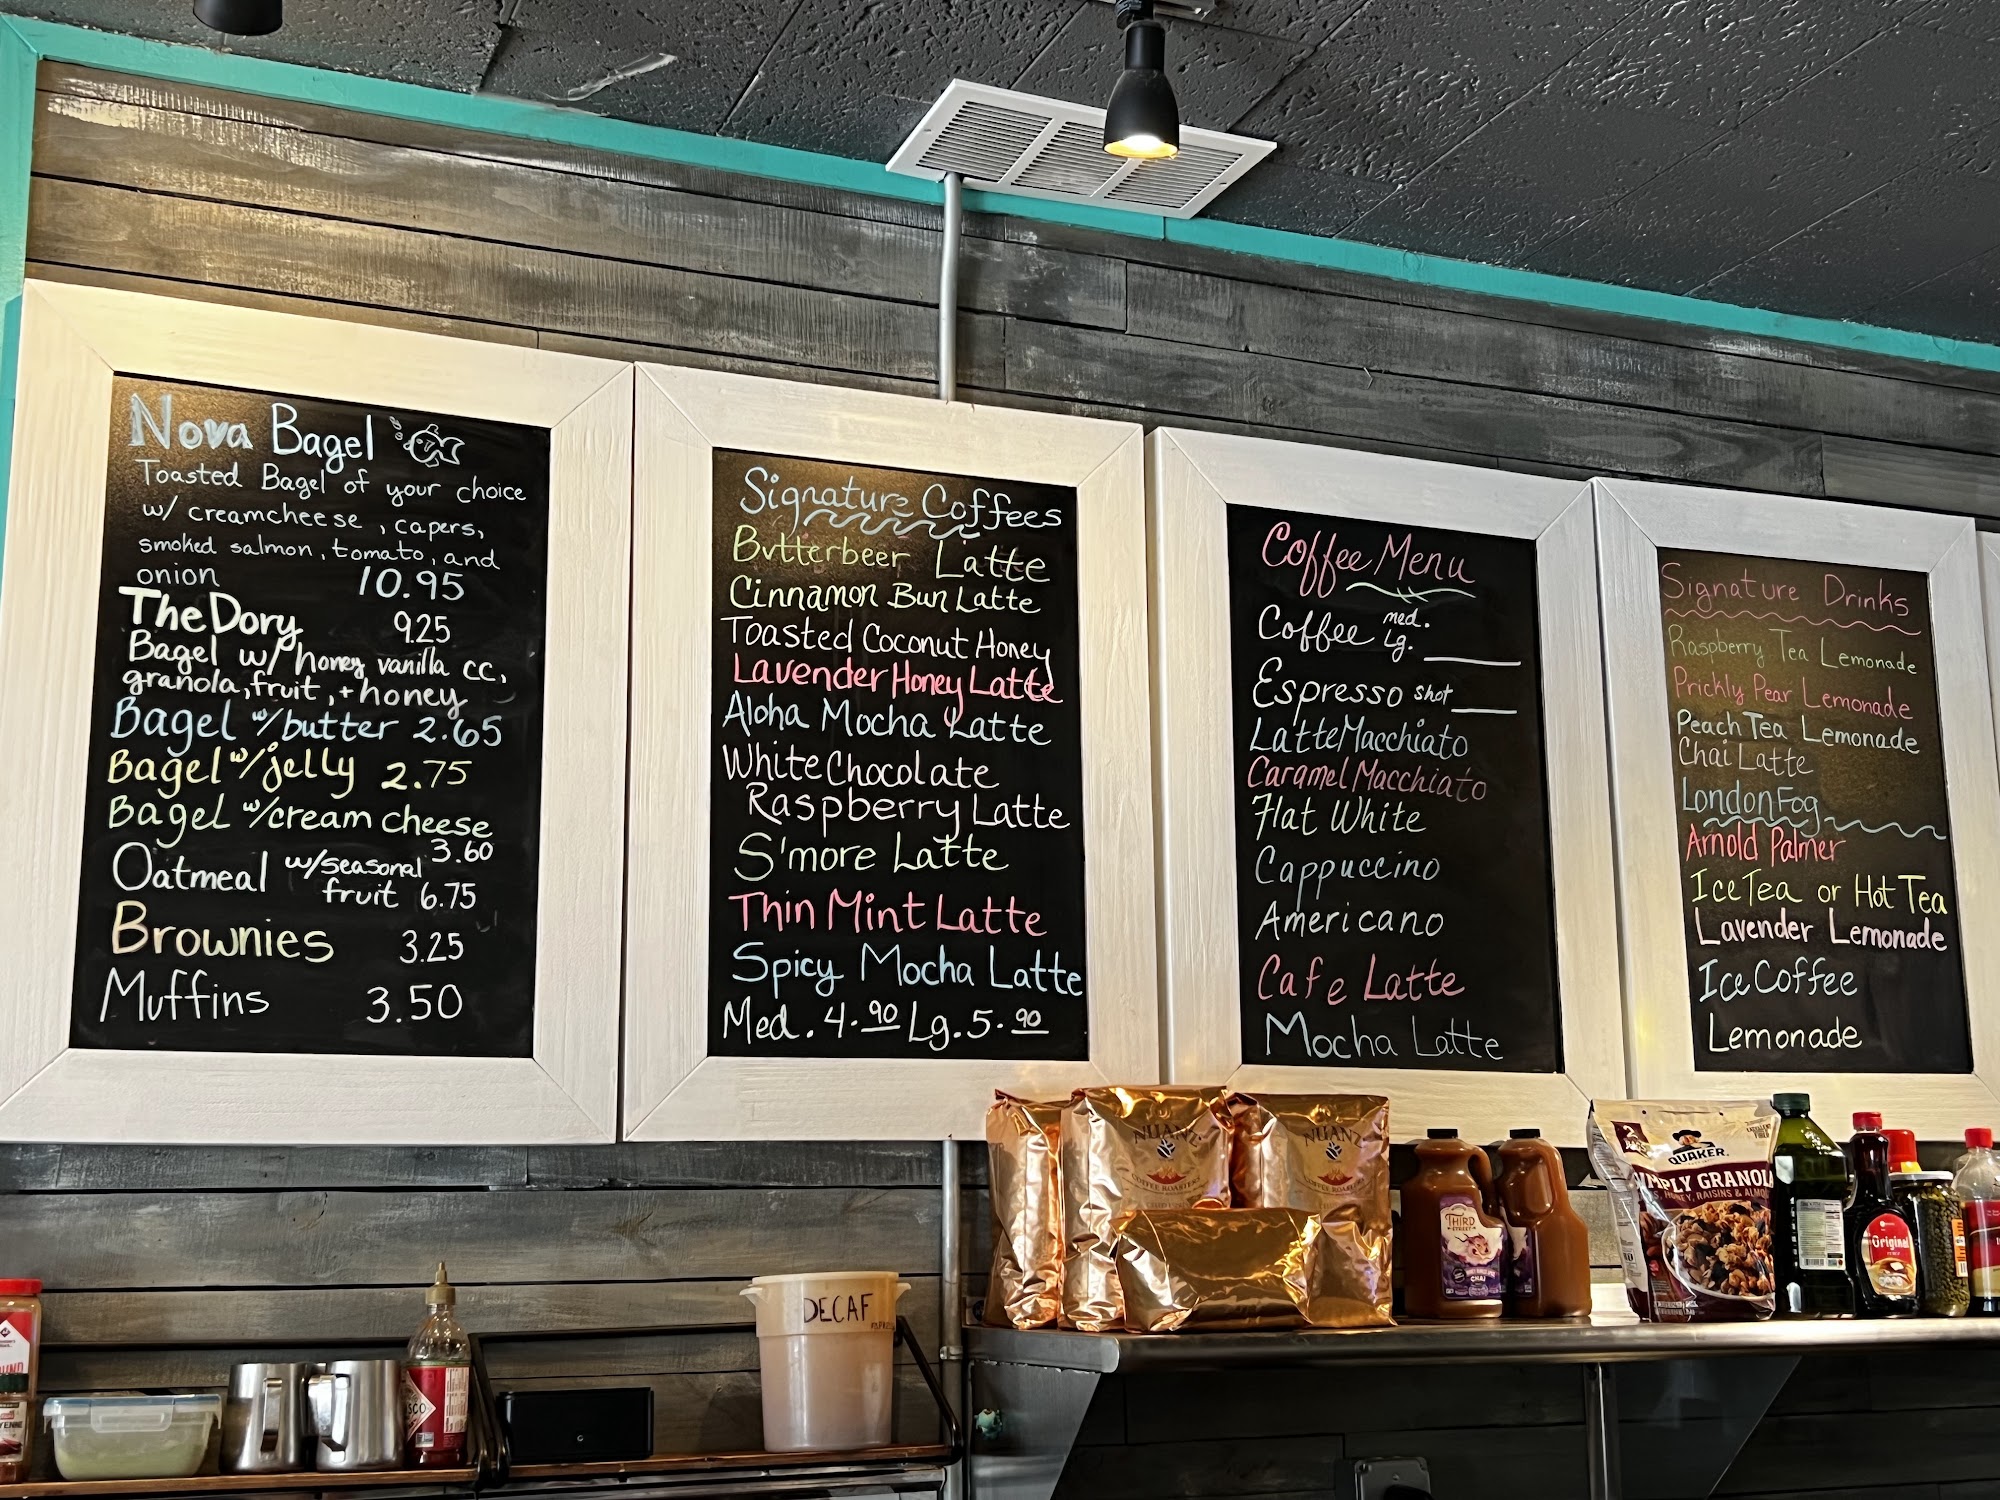 Nova Bagel
Toasted Bagel of your choice
w/ creamcheese, capers,
smoked salmon, tomato, and
onion 10.95
The Dory 9.25
Bagel w/ honey vanilla cc,
granola, fruit, + honey
Bagel w/butter 2.65
Bagel w/jelly 2.75
Bagel w/cream cheese
3.60
Oatmeal w/seasonal
fruit 6.75
Brownies 3.25
Muffins 3.50
Signature Coffees
Butterbeer Latte
Cinnamon Bun Latte
Toasted Coconut Honey
Lavender Honey Latte
Aloha Mocha Latte
White Chocolate
Raspberry Latte
S'more Latte
Thin Mint Latte
Spicy Mocha Latte
Med. 4.90 Lg. 5.90
Coffee Menu
Coffee med.
Lg.
Espresso shot
Latte Macchiato
Caramel Macchiato
Flat White
Cappuccino
Americano
Cafe Latte
Mocha Latte
Signature Drinks
Raspberry Tea Lemonade
Prickly Pear Lemonade
Peach Tea Lemonade
Chai Latte
London Fog
Arnold Palmer
Ice Tea or Hot Tea
Lavender Lemonade
Ice Coffee
Lemonade
NUANZ
COFFEE ROASTERS
NUANZ
COFFEE ROASTERS
THIRD
STREET
CHAI
QUAKER
SIMPLY GRANOLA
HONEY, RAISINS &
Original
DECAF